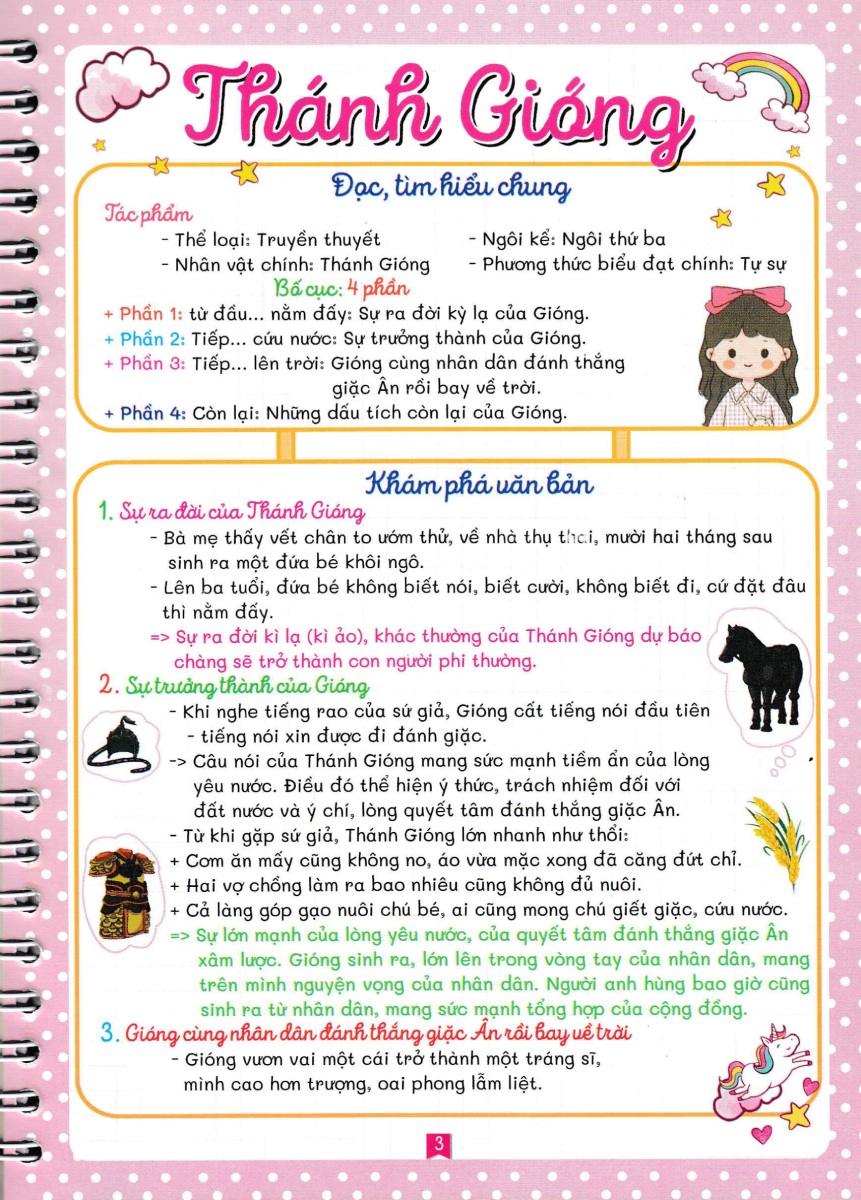 Thánh Gióng
Đọc, tìm hiểu chung
Tác phẩm
- Thể loại: Truyền thuyết
- Ngôi kể: Ngôi thứ ba
- Nhân vật chính: Thánh Gióng
- Phương thức biểu đạt chính: Tự sự
Bố cục: 4 phần
+ Phần 1: từ đầu... nằm đấy: Sự ra đời kỳ lạ của Gióng.
+ Phần 2: Tiếp... cứu nước: Sự trưởng thành của Gióng.
+ Phần 3: Tiếp... lên trời: Gióng cùng nhân dân đánh thắng
giặc Ân rồi bay về trời.
+ Phần 4: Còn lại: Những dấu tích còn lại của Gióng.
Khám phá văn bản
1. Sự ra đời của Thánh Gióng
- Bà mẹ thấy vết chân to ướm thử, về nhà thụ thai, mười hai tháng sau
sinh ra một đứa bé khôi ngô.
- Lên ba tuổi, đứa bé không biết nói, biết cười, không biết đi, cứ đặt đâu
thì nằm đấy.
=> Sự ra đời kì lạ (kì ảo), khác thường của Thánh Gióng dự báo
chàng sẽ trở thành con người phi thường.
2. Sự trưởng thành của Gióng
- Khi nghe tiếng rao của sứ giả, Gióng cất tiếng nói đầu tiên
- tiếng nói xin được đi đánh giặc.
-> Câu nói của Thánh Gióng mang sức mạnh tiềm ẩn của lòng
yêu nước. Điều đó thể hiện ý thức, trách nhiệm đối với
đất nước và ý chí, lòng quyết tâm đánh thắng giặc Ân.
- Từ khi gặp sứ giả, Thánh Gióng lớn nhanh như thổi:
+ Cơm ăn mấy cũng không no, áo vừa mặc xong đã căng đứt chỉ.
+ Hai vợ chồng làm ra bao nhiêu cũng không đủ nuôi.
+ Cả làng góp gạo nuôi chú bé, ai cũng mong chú giết giặc, cứu nước.
=> Sự lớn mạnh của lòng yêu nước, của quyết tâm đánh thắng giặc Ân
xâm lược. Gióng sinh ra, lớn lên trong vòng tay của nhân dân, mang
trên mình nguyện vọng của nhân dân. Người anh hùng bao giờ cũng
sinh ra từ nhân dân, mang sức mạnh tổng hợp của cộng đồng.
3. Gióng cùng nhân dân đánh thắng giặc Ân rồi bay về trời
- Gióng vươn vai một cái trở thành một tráng sĩ,
mình cao hơn trượng, oai phong lẫm liệt.
3